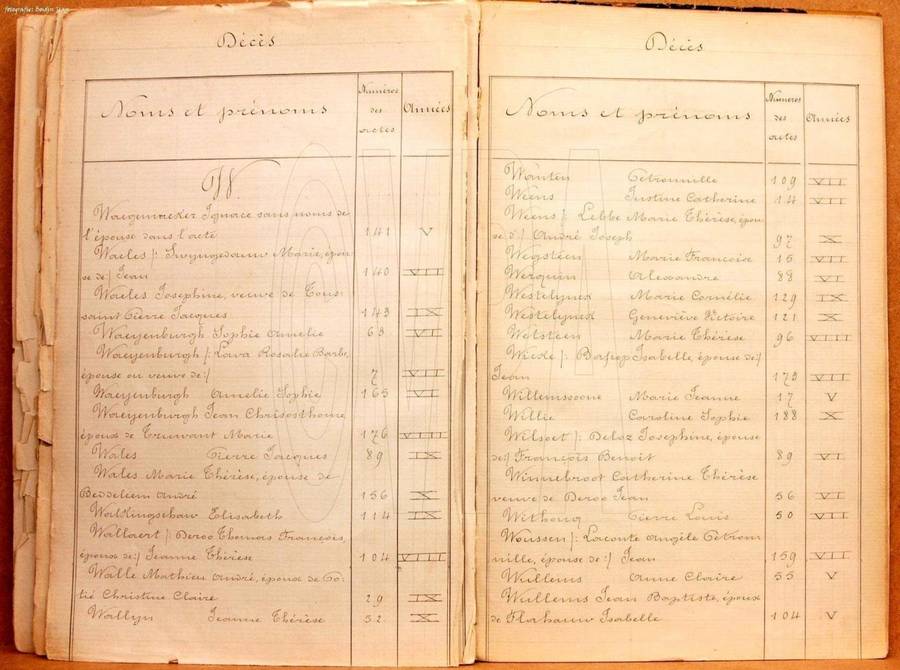 Décès
Noms et prénoms
Numéros des actes
Années
W
Waegemaeker Ignace sans noms de
l'épouse dans l'acte 141 V
Waeles /: Swyngedauw Marie, épou-
se de :/ Jean 140 VII
Waeles Josephine, veuve de Tous-
saint Pierre Jacques 143 IX
Waeyenburgh Sophie Amelie 63 VI
Waeyenburgh /: Lava Rosalie Barbe,
épouse ou veuve de :/ 7 VII
Waeyenburgh Amelie Sophie 165 VI
Waeyenburgh Jean Chrisosthome
époux de Truwant Marie 176 VIII
Wales Pierre Jacques 89 IX
Wales Marie Thérèse, épouse de
Beddeleem André 156 X
Walkingshaw Elisabeth 114 IX
Wallaert /: Deroo Thomas François,
époux de :/ Jeanne Thérèse 104 VIII
Walle Mathieu André, époux de Go-
tié Christine Claire 29 IX
Wallyn Jeanne Thérèse 52 X
Décès
Noms et prénoms
Numéros des actes
Années
Wanten Pétronnille 109 VII
Weens Justine Catherine 14 VII
Weens /: Lebbe Marie Thérèse, épou-
se d :/ André Joseph 97 X
Wegsteen Marie Francoise 15 VII
Werquin Alexandre 88 VI
Westelynck Marie Cornélie 129 IX
Westelynck Geneviève Victoire 121 X
Wetsteen Marie Thérèse 96 VIII
Isabelle, épouse de :/
Jean 173 VII
Willemsoone Marie Jeanne 17 V
Willie Caroline Sophie 188 X
Wilsoet /: Deloz Josephine, épouse
de :/ François Benoit 89 VI
Winnebroot Catherine Thérèse
veuve de Deroo Jean 56 VI
Withoug Pierre Louis 50 VII
Woussen /: Laconte Angèle Pétron-
nille, épouse de :/ Jean 159 VII
Wullems Anne Claire 55 V
Wullems Jean Baptiste, époux
de Flahauw Isabelle 104 V